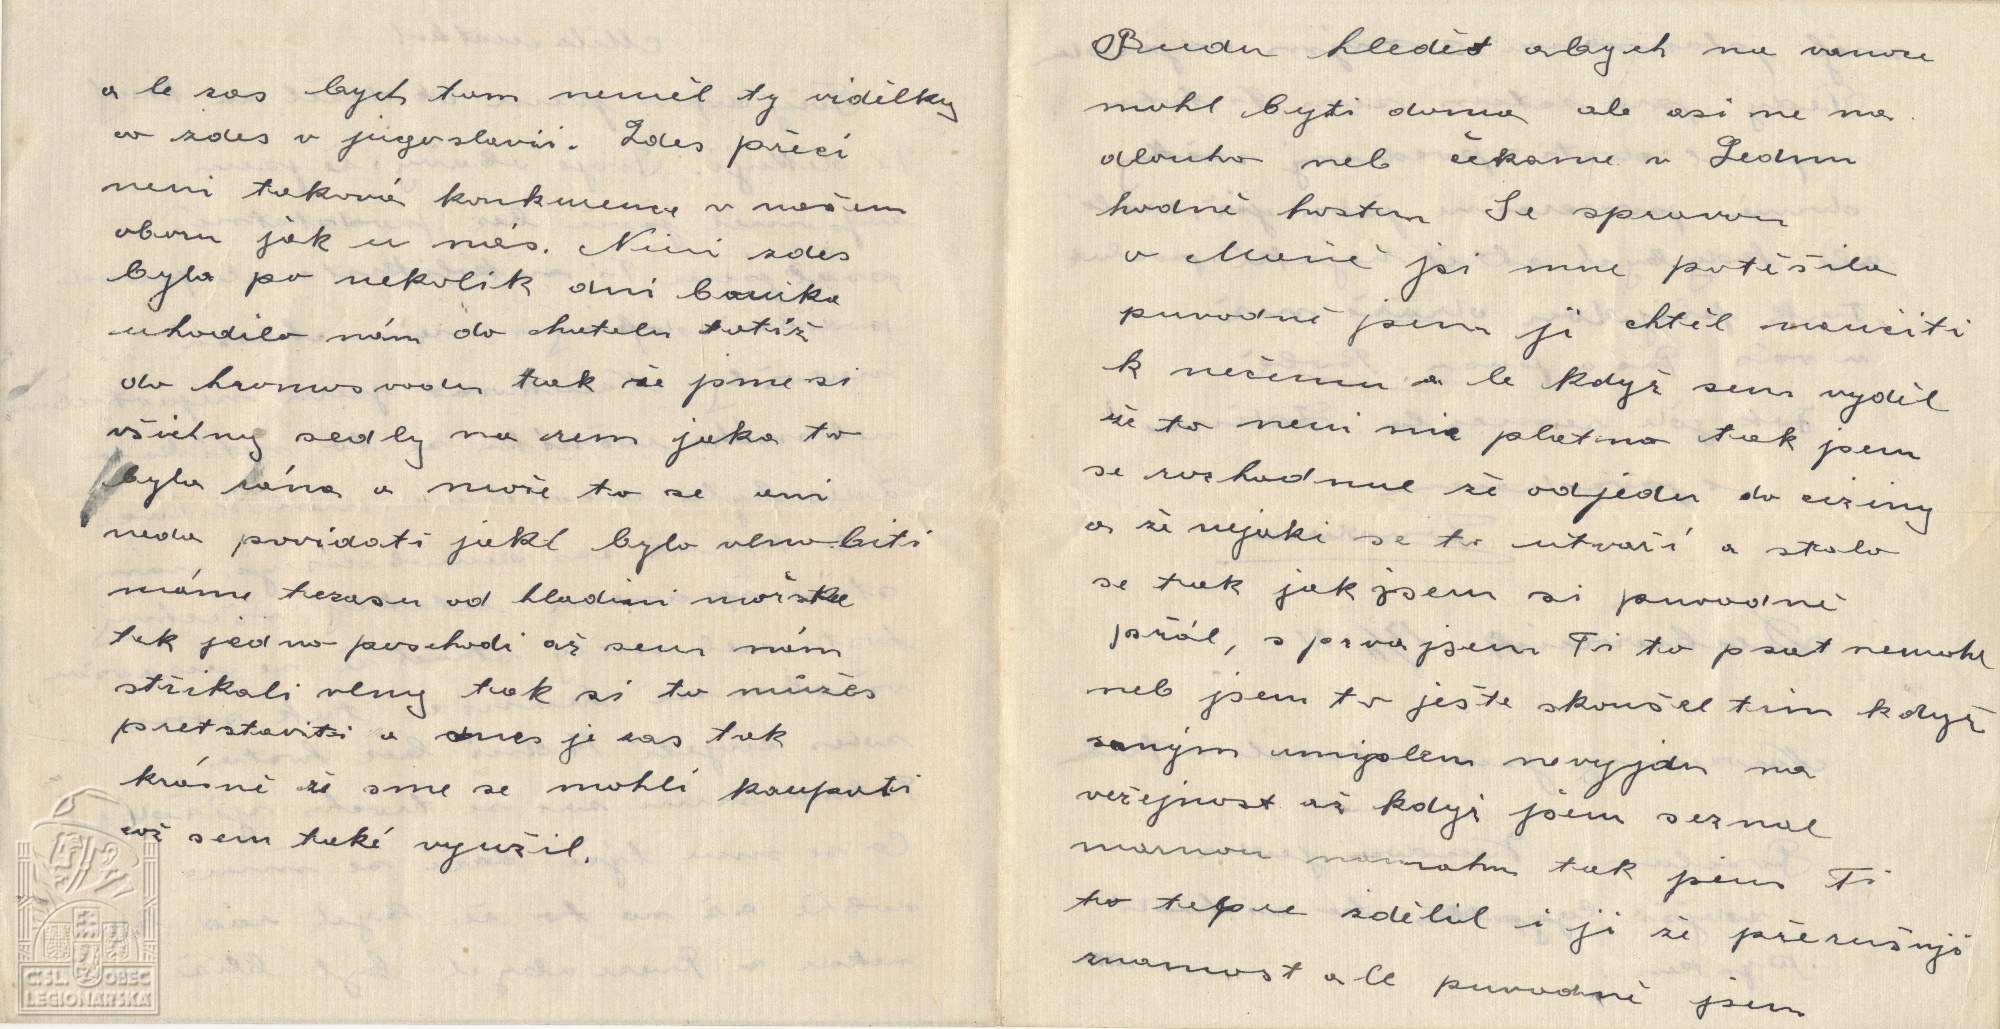 a le zas bych tam neměl ty vidělky
co zdes v jugoslavii. Zdes přeci
neni taková konkurence v našem
oboru ják u nás. Nini zdes
byla po nekolik dní bouřka
uhodilo nám do hotelu totiž
do hromosvodu tak že jsme si
všichny sedly na zem jaka to
byla rána a moře to se ani
neda povidati jake bylo vlno biti
máme terasu od hladini mořske
tak jedno poschodi až sem nám
střikali vlny tak si to můžěs
pretstaviti a dnes je zas tak
krásně že sme se mohli koupati
což sem také využil.
Budu hledět abych na vanoce
mohl byti doma ale asi ne na
dlouho neb čekame v Lednu
hodně hostu Se spravou
o Maně jsi mne potěšila
puvodně jsem ji chtěl naučiti
k nečemu a le když sem vyděl
že to neni nic platno tak jsem
se rozhodnul že odjedu do ciziny
a že nejaki se to utvaří a stalo
se tak jak jsem si puvodně
přál, s prva jsem Ti to psat nemohl
neb jsem to ješte skoušel tim když
umyslem nevyjdu na
veřejnost až když jsem seznal
marnou namahu tak jsem Ti
to teprve zdělil i ji že přerušuji
znamost a le puvodně jsem
ČSL. OBEC
LEGIONÁŘSKÁ